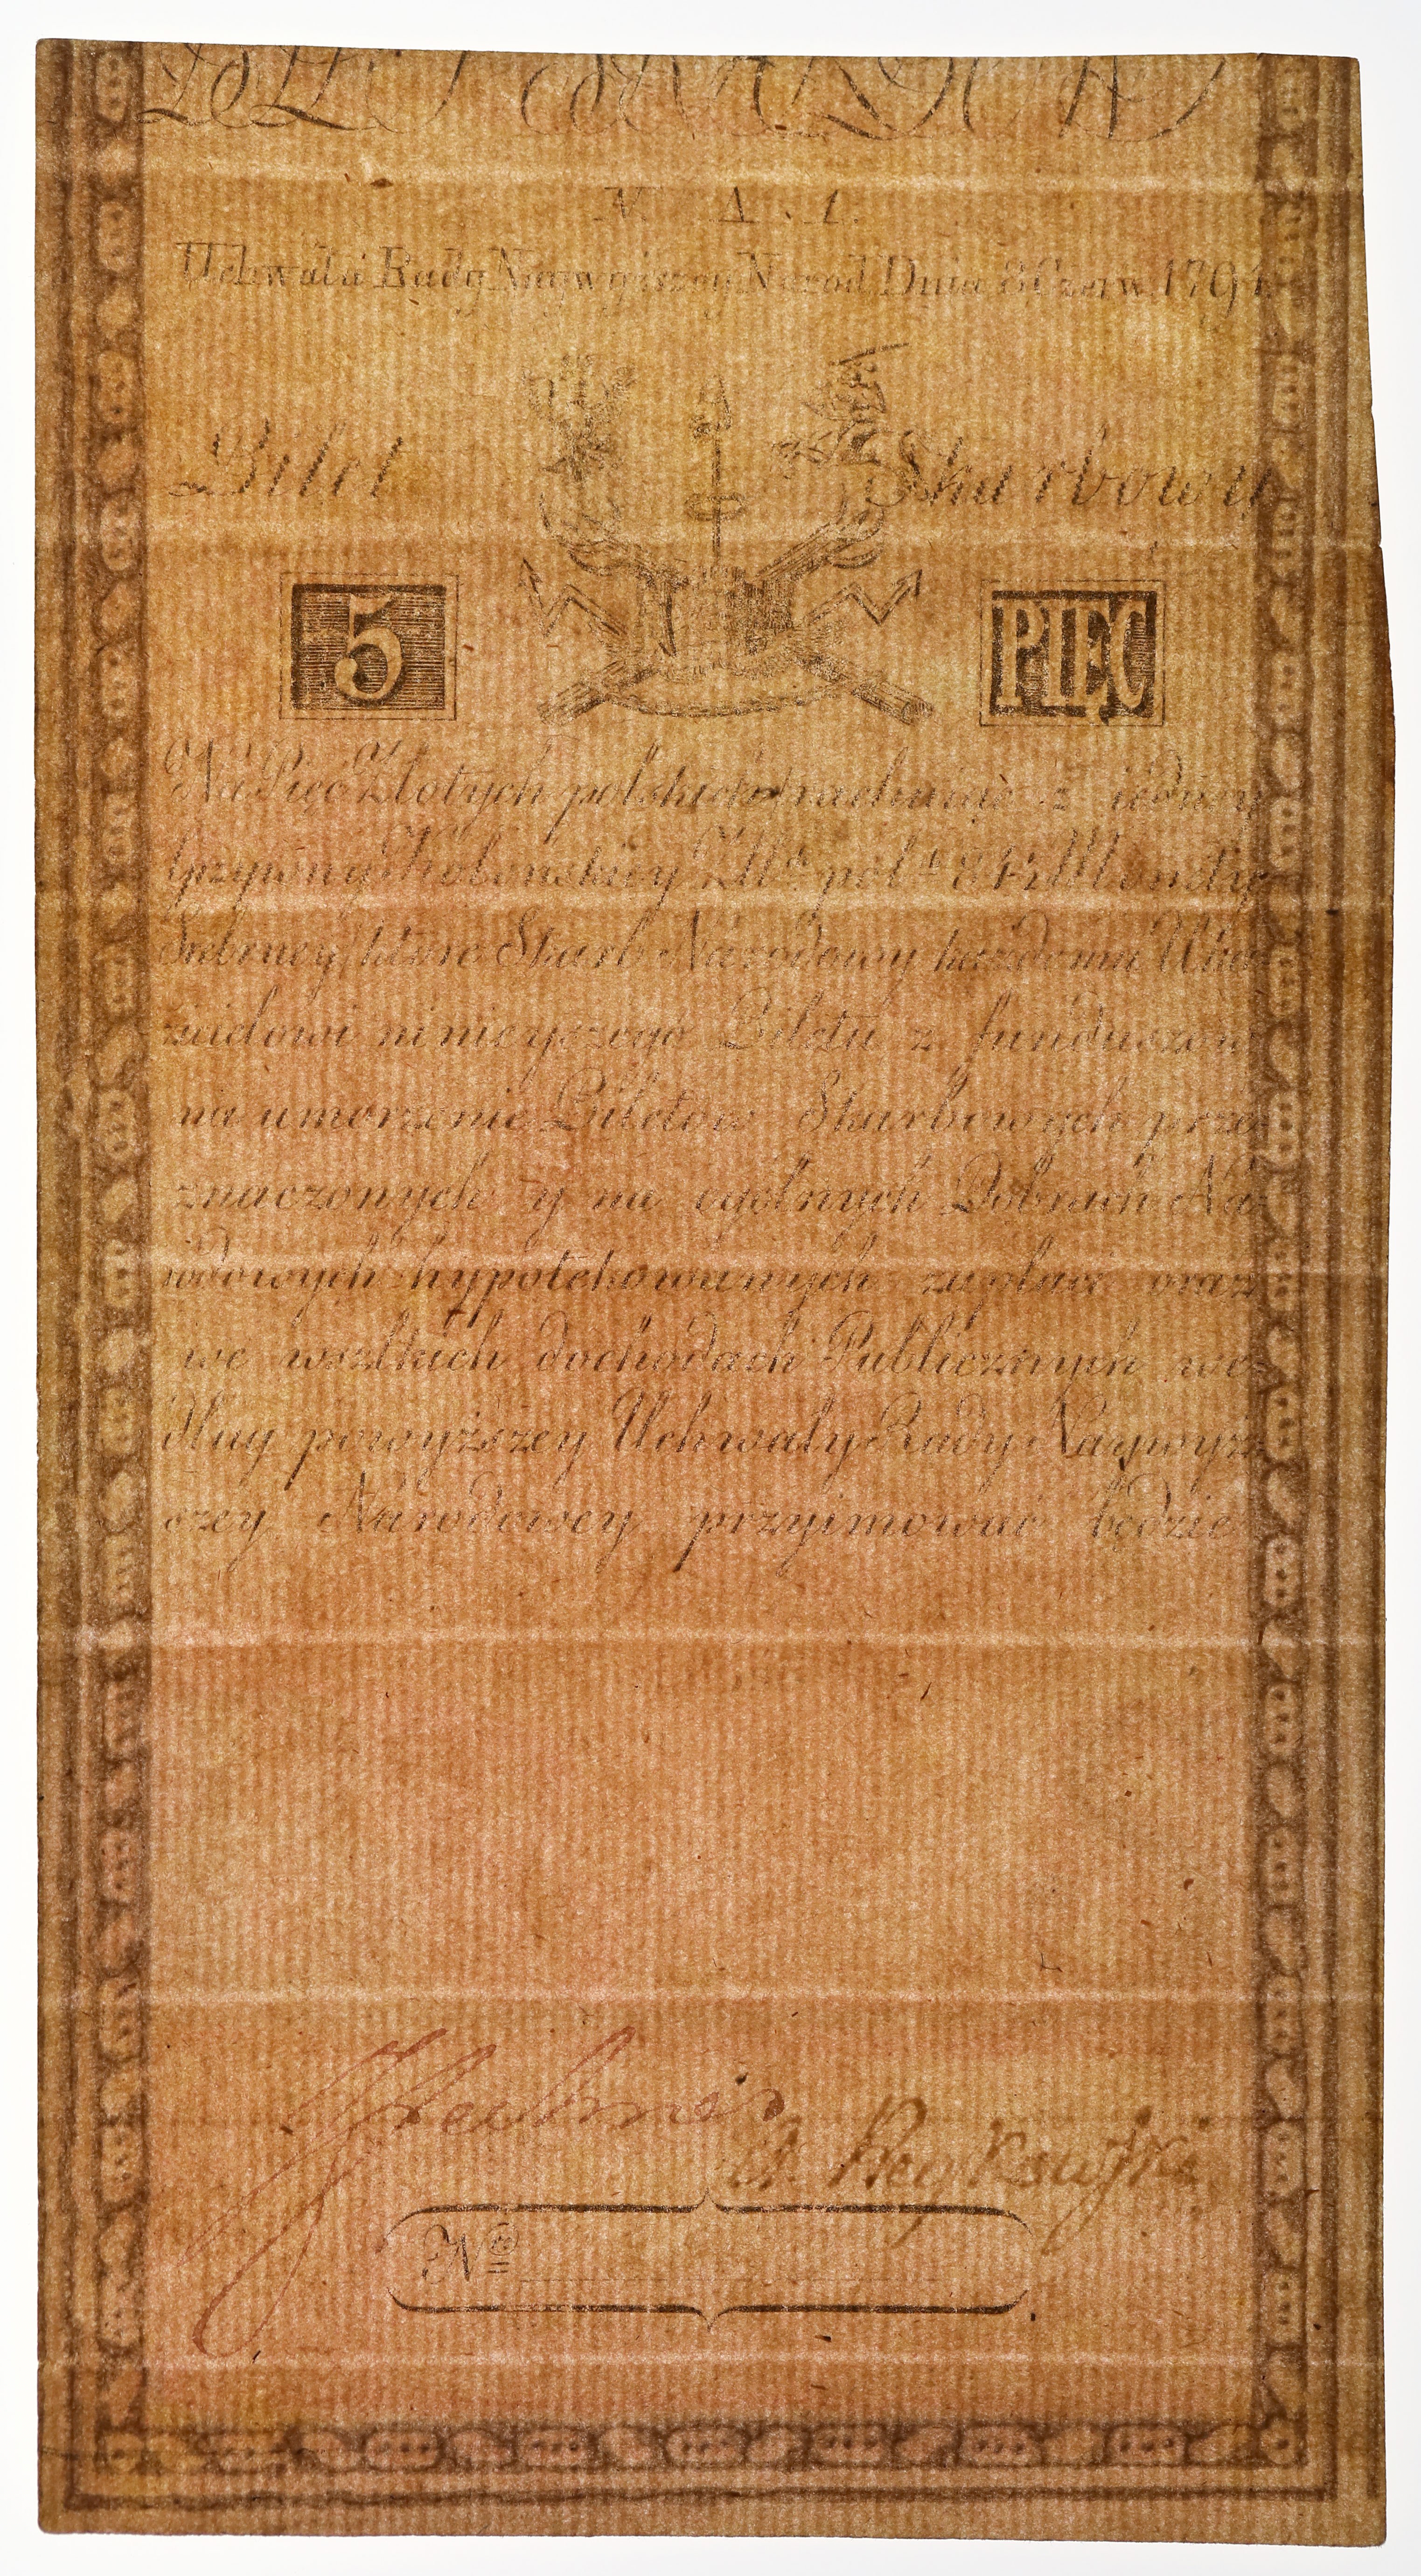 N. A. 1.
Uchwałą Rady Naywyższey Narod Dnia 8 Czerw. 1794
Bilet Skarbowy
5 PIĘĆ
Na Pięć Złotych polskich rachuiąc z iedney
grzywny Kolońskiey Złt: pol: 84½ Monety
Srebrney, ktore Skarb Narodowy każdemu Uka-
zicielowi ninieyszego Biletu z funduszow
na umorzenie Biletow Skarbowych prze-
znaczonych y na ogólnych Dobrach Na-
rodowych hypotekowanych zapłaci oraz
we wszelkich dochodach Publicznych we-
dług powyższey Uchwały Rady Naywyż-
szey Narodowey przyimować będzie
No